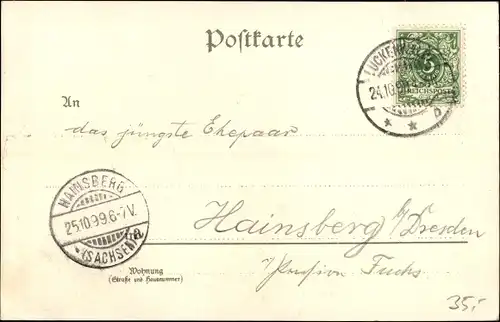 Postkarte
LUCKENWALDE
24.10.99
5
REICHSPOST
An
das jüngste Ehepaar
HAINSBERG
25.10.99.6-7V.
(SACHSEN)
in
Hainsberg b/Dresden
Wohnung
(Straße und Hausnummer)
Pension Fuchs
35,-